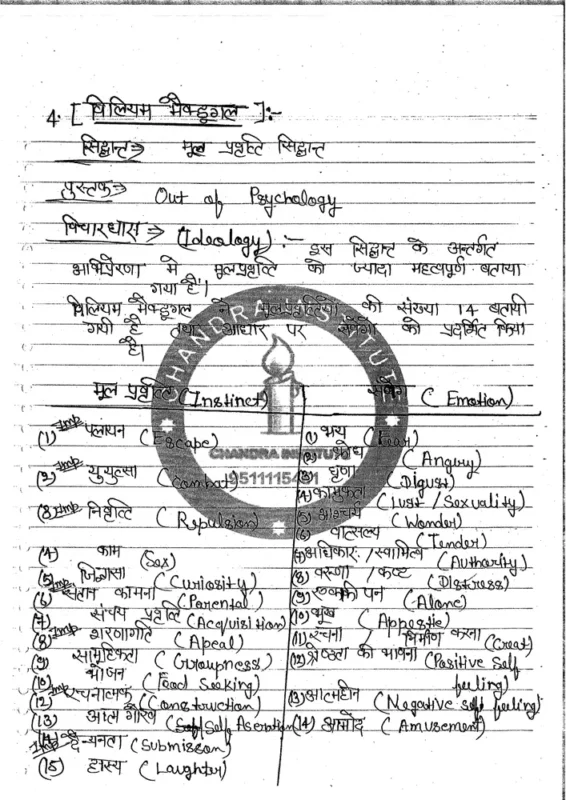 4. [ विलियम मैक्डूगल ]:-
सिद्धान्त ⇒ मूल प्रवृत्ति सिद्धान्त
पुस्तक ⇒ Out of Psychology
विचारधारा ⇒ (Ideology) :- इस सिद्धान्त के अन्तर्गत
अभिप्रेरणा में मूलप्रवृत्ति को ज्यादा महत्वपूर्ण बताया
गया है।
विलियम मैक्डूगल ने मूलप्रवृत्तियों की संख्या 14 बतायी
गयी है तथा आधार पर संवेगों को प्रदर्शित किया
है।
मूल प्रवृत्ति (Instinct) संवेग (Emotion)
(1) Imp पलायन (Escape) (1) भय (Fear)
(2) क्रोध (Angury)
(2) Imp युयुत्सा (Combat) (3) घृणा (Digust)
(4) कामुकता (Lust / Sexuality)
(3) Imp निवृत्ति (Repulsion) (5) आश्चर्य (Wonder)
(6) वात्सल्य (Tender)
(4) काम (Sex) (7) अधिकार / स्वामित्व (Authority)
(5) Imp जिज्ञासा (Curiosity) (8) करुणा / कष्ट (Distress)
(6) संतान कामना (Parental) (9) एकाकीपन (Alone)
(7) संचय प्रवृत्ति (Acquisition) (10) भूख (Appestie)
(8) Imp शरणागति (Apeal) (11) रचना / निर्माण करना (Creat)
(9) सामूहिकता (Groupness) (12) श्रेष्ठता की भावना (Positive Self feeling)
(10) भोजन (Food Seeking)
(12) Imp रचनात्मक (Construction) (13) आत्महीन (Negative self feeling)
(13) आत्म गौरव (Self Aseration) (14) आमोद (Amusement)
(14) Imp दैन्यता (Submisson)
(15) हास्य (Laughter)
CHANDRA INSTITUTE
CHANDRA INSTITUTE